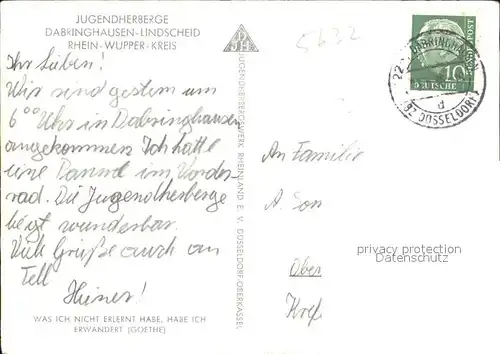 JUGENDHERBERGE
DABRINGHAUSEN-LINDSCHEID
RHEIN-WUPPER-KREIS
Ihr Lieben!
Wir sind gestern um
6⁰⁰ Uhr in Dabringhausen
angekommen. Ich hatte
eine Panne im Vorder-
rad. Die Jugendherberge
liegt wunderbar.
Viele Grüße auch an
Tell
Heiner!
WAS ICH NICHT ERLERNT HABE, HABE ICH
ERWANDERT (GOETHE)
DJH
JUGENDHERBERGSWERK RHEINLAND E. V. DÜSSELDORF-OBERKASSEL
5632
10
DEUTSCHE
BUNDESPOST
22 DABRINGHAUSEN
(BZ DÜSSELDORF)
d
An Familie
A. Son
privacy protection
Datenschutz